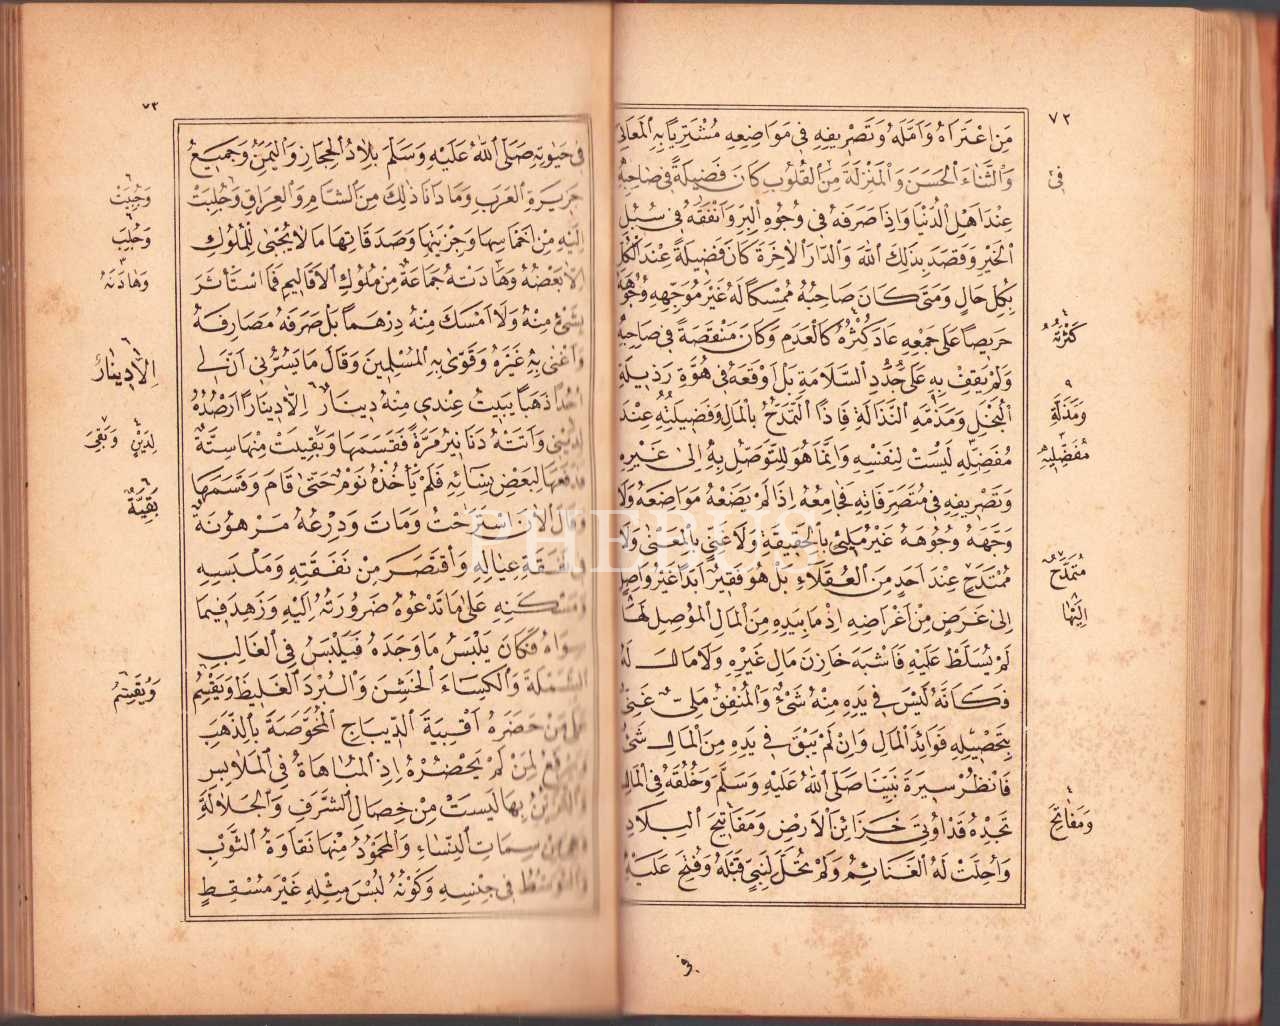 ٧٢
مَنِ اعْتَرَاهُ وَاَمَّلَهُ وَتَصْرِيفِهِ فِي مَوَاضِعِهِ مُشْتَرِيًا بِهِ الْمَعَالِيَ
وَالثَّنَاءَ الْحَسَنَ وَالْمَنْزِلَةَ مِنَ الْقُلُوبِ كَانَ فَضِيلَةً فِي صَاحِبِهِ
عِنْدَ اَهْلِ الدُّنْيَا وَاِذَا صَرَفَهُ فِي وُجُوهِ الْبِرِّ وَاَنْفَقَهُ فِي سُبُلِ
الْخَيْرِ وَقَصَدَ بِذٰلِكَ اللّٰهَ وَالدَّارَ الْاٰخِرَةَ كَانَ فَضِيلَةً عِنْدَ الْكُلِّ
بِكُلِّ حَالٍ وَمَتٰى كَانَ صَاحِبُهُ مُمْسِكًا لَهُ غَيْرَ مُوَجِّهِهِ وُجُوهَهُ
حَرِيصًا عَلٰى جَمْعِهِ عَادَ كُثْرُهُ كَالْعَدَمِ وَكَانَ مَنْقَصَةً فِي صَاحِبِهِ
وَلَمْ يَقِفْ بِهِ عَلٰى جُدَدِ السَّلَامَةِ بَلْ اَوْقَعَهُ فِي هُوَّةِ رَذِيلَةِ
الْبُخْلِ وَمَذَمَّةِ النَّذَالَةِ فَاِذًا التَّمَدُّحُ بِالْمَالِ وَفَضِيلَتُهُ عِنْدَ
مُفَضِّلِهِ لَيْسَتْ لِنَفْسِهِ وَاِنَّمَا هُوَ لِلتَّوَصُّلِ بِهِ اِلٰى غَيْرِهِ
وَتَصْرِيفِهِ فِي مُتَصَرَّفَاتِهِ فَجَامِعُهُ اِذَا لَمْ يَضَعْهُ مَوَاضِعَهُ وَلَا
وَجَّهَهُ وُجُوهَهُ غَيْرُ مَلِيءٍ بِالْحَقِيقَةِ وَلَا غَنِيٍّ بِالْمَعْنٰى وَلَا
مُمْتَدَحٍ عِنْدَ اَحَدٍ مِنَ الْعُقَلَاءِ بَلْ هُوَ فَقِيرٌ اَبَدًا غَيْرُ وَاصِلٍ
اِلٰى غَرَضٍ مِنْ اَغْرَاضِهِ اِذْ مَا بِيَدِهِ مِنَ الْمَالِ الْمُوصِلِ لَهَا
لَمْ يُسَلَّطْ عَلَيْهِ فَاَشْبَهَ خَازِنَ مَالِ غَيْرِهِ وَلَا مَالَ لَهُ
فَكَاَنَّهُ لَيْسَ فِي يَدِهِ مِنْهُ شَيْءٌ وَالْمُنْفِقُ مَلِيٌّ غَنِيٌّ
بِتَحْصِيلِهِ فَوَائِدَ الْمَالِ وَاِنْ لَمْ يَبْقَ فِي يَدِهِ مِنَ الْمَالِ شَيْءٌ
فَانْظُرْ سِيرَةَ نَبِيِّنَا صَلَّى اللّٰهُ عَلَيْهِ وَسَلَّمَ وَخُلُقَهُ فِي الْمَالِ
تَجِدْهُ قَدْ اُوتِيَ خَزَائِنَ الْاَرْضِ وَمَفَاتِيحَ الْبِلَادِ
وَاُحِلَّتْ لَهُ الْغَنَائِمُ وَلَمْ تُحَلَّ لِنَبِيٍّ قَبْلَهُ وَفُتِحَ عَلَيْهِ
فِي
كَثْرَتُهُ
وَمَذَلَّةِ
مُفَضِّلِيهِ
مُتَمَدَّحٌ
اِلَيْهَا
وَمَفَاتِحَ
فِي
٧٣
فِي حَيٰوتِهِ صَلَّى اللّٰهُ عَلَيْهِ وَسَلَّمَ بِلَادُ الْحِجَازِ وَالْيَمَنِ وَجَمِيعُ
جَزِيرَةِ الْعَرَبِ وَمَا دَانَا ذٰلِكَ مِنَ الشَّامِ وَالْعِرَاقِ وَجُلِبَتْ
اِلَيْهِ مِنْ اَخْمَاسِهَا وَجِزْيَتِهَا وَصَدَقَاتِهَا مَا لَا يُجْبٰى لِلْمُلُوكِ
اِلَّا بَعْضُهُ وَهَادَتْهُ جَمَاعَةٌ مِنْ مُلُوكِ الْاَقَالِيمِ فَمَا اسْتَأْثَرَ
بِشَيْءٍ مِنْهُ وَلَا اَمْسَكَ مِنْهُ دِرْهَمًا بَلْ صَرَفَهُ مَصَارِفَهُ
وَاَغْنٰى بِهِ غَيْرَهُ وَقَوّٰى بِهِ الْمُسْلِمِينَ وَقَالَ مَا يَسُرُّنِي اَنَّ لِي
اُحُدًا ذَهَبًا يَبِيتُ عِنْدِي مِنْهُ دِينَارٌ اِلَّا دِينَارًا اَرْصُدُهُ
لِدَيْنِي وَاَتَتْهُ دَنَانِيرُ مَرَّةً فَقَسَمَهَا وَبَقِيَتْ مِنْهَا سِتَّةٌ
فَدَفَعَهَا لِبَعْضِ نِسَائِهِ فَلَمْ يَأْخُذْهُ نَوْمٌ حَتّٰى قَامَ وَقَسَمَهَا
وَقَالَ الْاٰنَ اسْتَرَحْتُ وَمَاتَ وَدِرْعُهُ مَرْهُونَةٌ
فِي نَفَقَةِ عِيَالِهِ وَاقْتَصَرَ مِنْ نَفَقَتِهِ وَمَلْبَسِهِ
وَمَسْكَنِهِ عَلٰى مَا تَدْعُوهُ ضَرُورَتُهُ اِلَيْهِ وَزَهِدَ فِيمَا
سِوَاهُ فَكَانَ يَلْبَسُ مَا وَجَدَهُ فَيَلْبَسُ فِي الْغَالِبِ
الشَّمْلَةَ وَالْكِسَاءَ الْخَشِنَ وَالْبُرْدَ الْغَلِيظَ وَيَقْسِمُ
عَلٰى مَنْ حَضَرَهُ اَقْبِيَةَ الدِّيبَاجِ الْمُخَوَّصَةَ بِالذَّهَبِ
وَيَرْفَعُ لِمَنْ لَمْ يَحْضُرْهُ اِذِ الْمُبَاهَاةُ فِي الْمَلَابِسِ
وَالتَّزَيُّنُ بِهَا لَيْسَتْ مِنْ خِصَالِ الشَّرَفِ وَالْجَلَالَةِ
وَهِيَ مِنْ سِمَاتِ النِّسَاءِ وَالْمَحْمُودُ مِنْهَا نَقَاوَةُ الثَّوْبِ
وَالتَّوَسُّطُ فِي جِنْسِهِ وَكَوْنُهُ لُبْسَ مِثْلِهِ غَيْرَ مُسْقِطٍ
وَجُبِيَتْ
وَجُلِبَ
وَهَادَنَهُ
اِلَّا دِينَارٌ
لِدَيْنٍ وَبَقِيَ
بَقِيَّةٌ
وَيُقَسِّمُ
PHEBUS